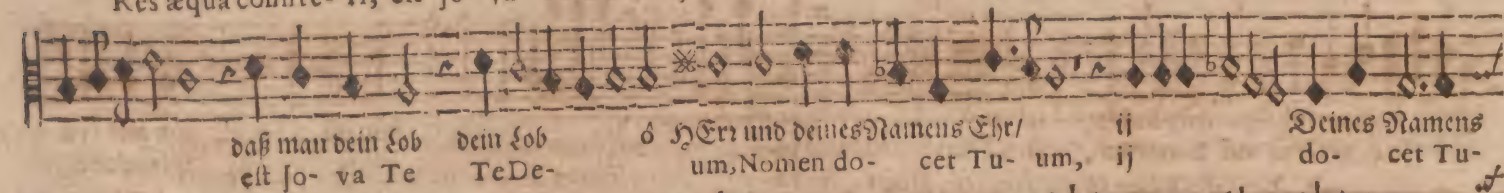 Res æqua
daß man dein Lob dein Lob ó HErr und deines Namens Ehr/ ij Deines Namens
est Jo- va Te Te De- um, Nomen do- cet Tu- um, ij do- cet Tu-